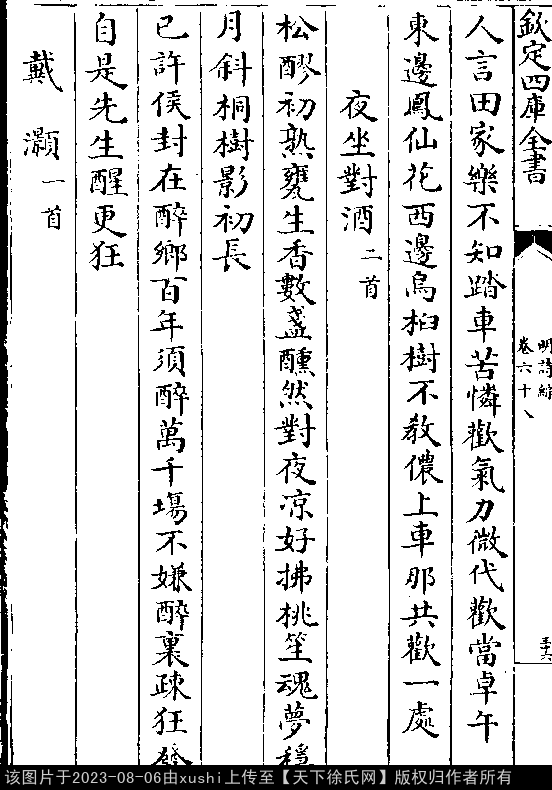 欽定四庫全書
明詩綜
卷六十八
三十六
人言田家樂不知踏車苦憐歡氣力微代歡當卓午
東邊鳳仙花西邊烏桕樹不敎儂上車那共歡一處
夜坐對酒二首
松醪初熟甕生香數盞醺然對夜凉好拂桃笙魂夢穩
月斜桐樹影初長
已許侯封在醉鄉百年須醉萬千塲不嫌醉裏疎狂發
自是先生醒更狂
戴灝一首
该图片于2023-08-06由xushi上传至【天下徐氏网】版权归作者所有